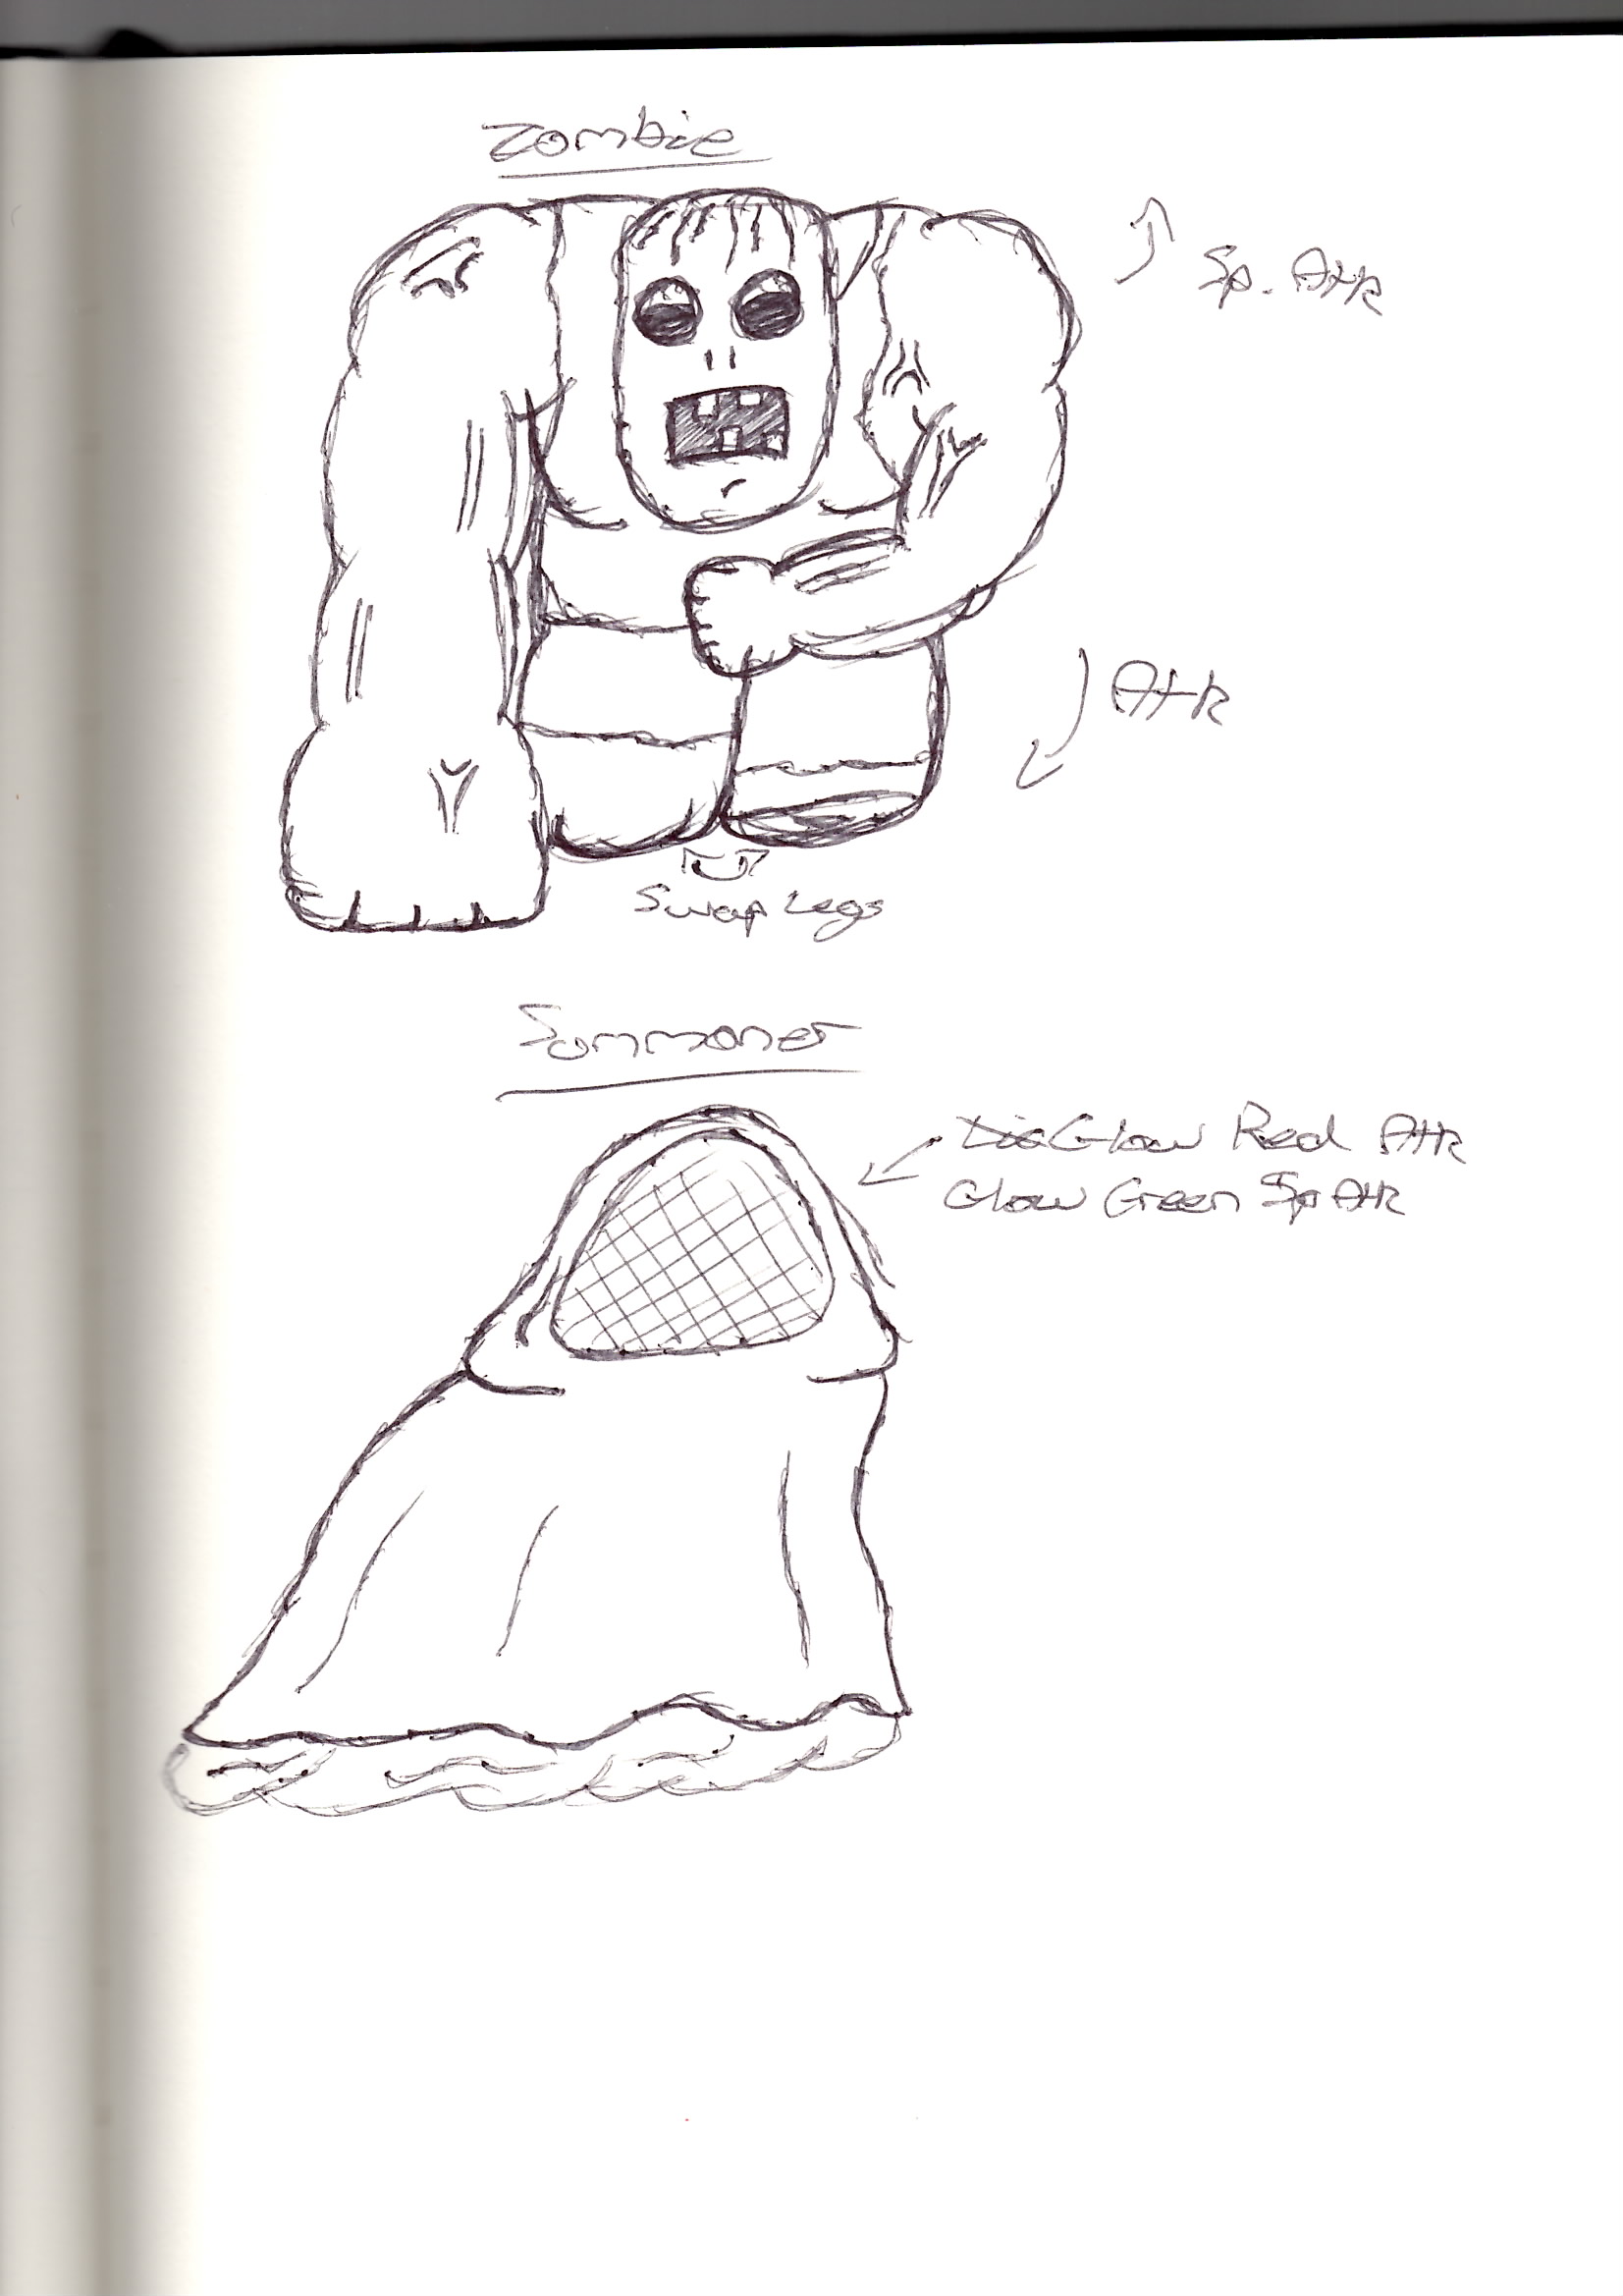 Zombie
Sp. Atk
Atk
Swap Legs
Summoner
Glow Red Atk
Glow Green Sp Atk